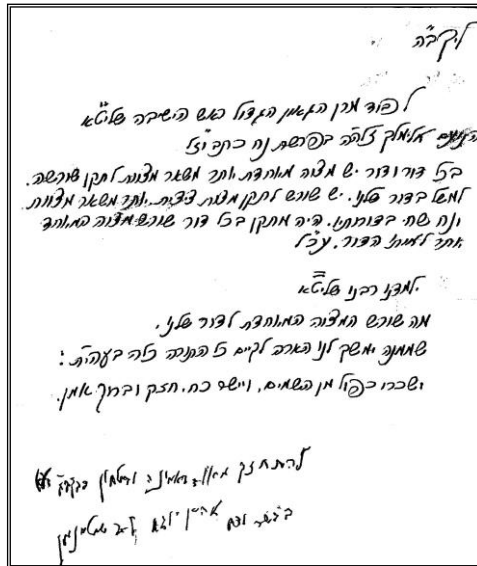 לכבוד מרן הגאון הגדול ראש הישיבה שליט"א
הנועם אלימלך זלה"ה בפרשת נח כתב וז"ל
בכל דור ודור יש מצוה מאוחדת יותר משאר מצוות לתקן שורשה.
למשל בדור שלנו. יש שורש לתקן מצות ציצית. יותר משאר מצוות
ונח שחי בדורותיו. היה מתקן בכל דור שורש מצוה המאוחד
יותר לאותו הדור. עכ"ל
ילמדנו רבנו שליט"א
מה שורש המצוה המאוחדת לדור שלנו.
שממנה ימשך לנו הארה לקיים כל התורה כולה בעהי"ת:
ושכרו כפול מן השמים. ויישר כח. חזק וברוך אמן.
להתחזק באמונה ובטחון
אהרן ליב שטינמן